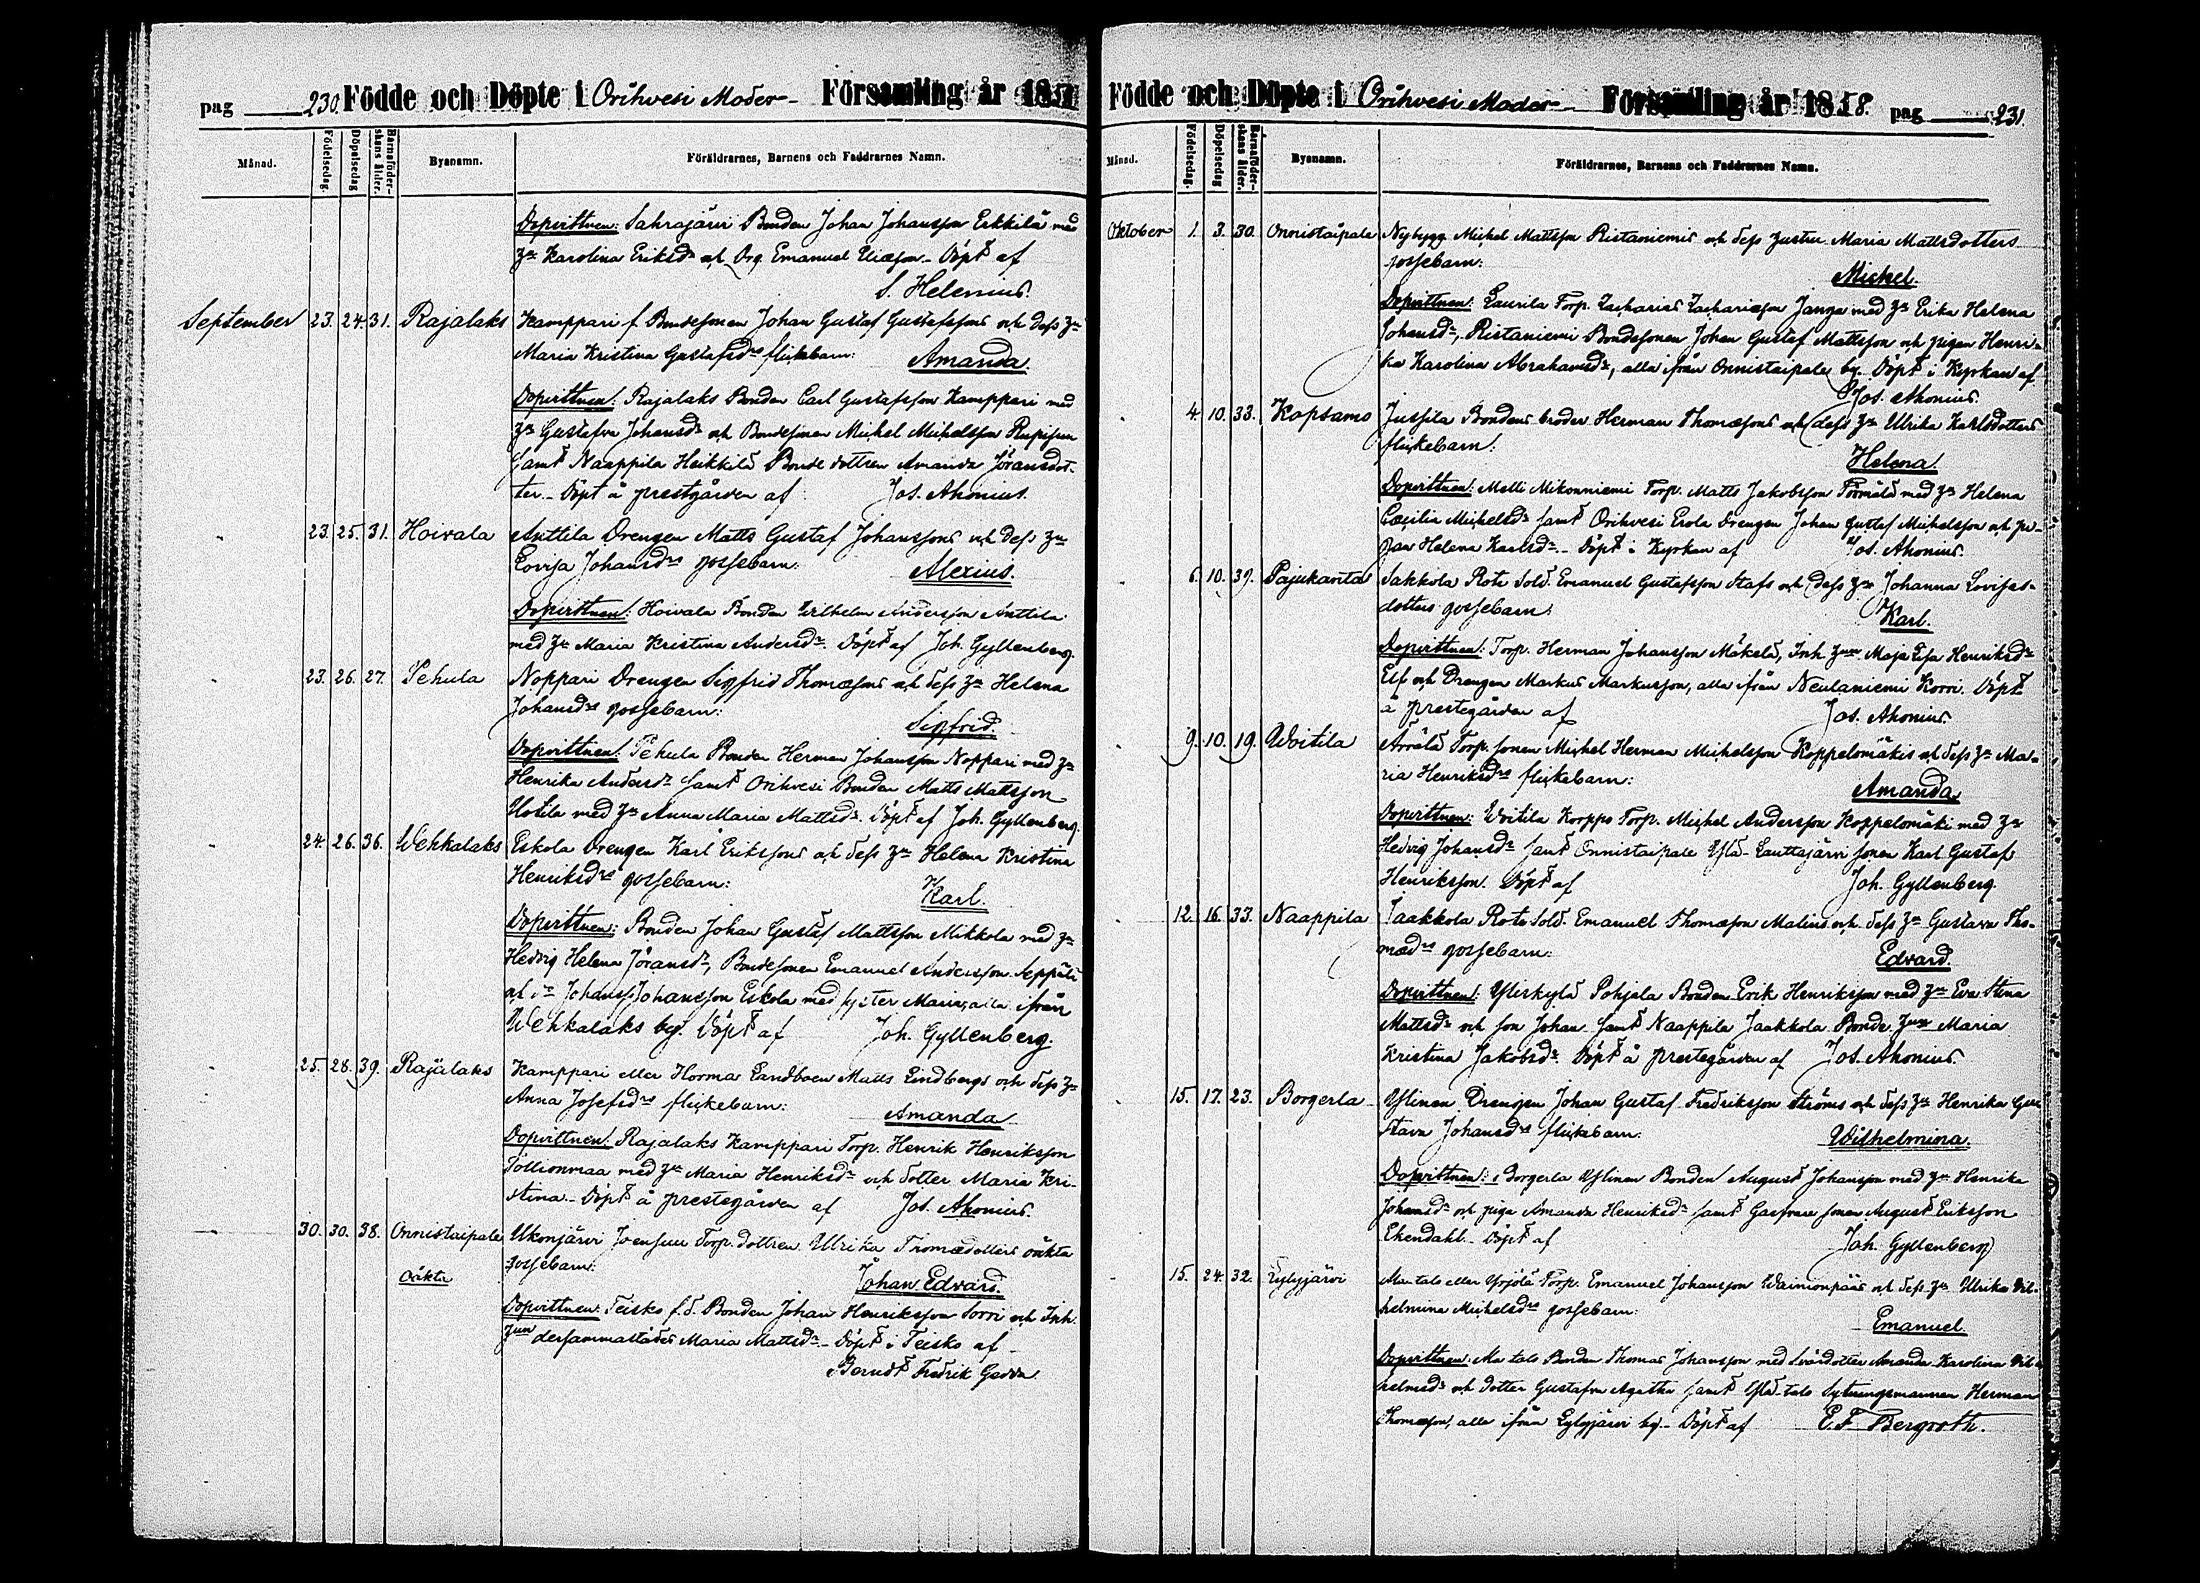 pag 230. Födde och Döpte i Orihvesi Moder- Församling år 185
Månad. Födelsedag. Döpelsedag Barnaföder-skans ålder. Bysnamn. Föräldrarnes, Barnens och Faddrarnes Namn.
Dopvittnen: Sahrajärvi Bonden Johan Johansson Erkkilä med
hu Karolina Eriksdr och Drg. Emanuel Eliasson - Döpt af
S. Helenius.
September 23. 24. 31. Rajalaks Kamppari f. Bondesonen Johan Gustaf Gustafssons och dess hu
Maria Kristina Gustafsdrs flickebarn: Amanda.
Dopvittnen: Rajalaks Bonden Carl Gustafsson Kamppari med
hu Gustafva Johansdr och Bondesonen Michel Michelsson
samt Naappila Heikkilä Bonde dottren Amanda Göransdot-
ter. - Döpt å prestgården af Jos. Ahonius.
23. 25. 31. Hoivala Anttila Drengen Matts Gustaf Johanssons och dess hu
Lovisa Johansdrs gossebarn: Alexius.
Dopvittnen: Hoivala Bonden Wilhelm Andersson Anttila
med hu Maria Kristina Andersdr. Döpt af Joh. Gyllenberg.
23. 26. 27. Pehula Noppari Drengen Sigfrid Thomassons och dess hu Helena
Johansdrs gossebarn: Sigfrid.
Dopvittnen: Pehula Bonden Herman Johansson Noppari med hu
Henrika Andersdr samt Orihvesi Bonden Matts Mattsson
Uotila med hu Anna Maria Mattsdr. Döpt af Joh. Gyllenberg.
24. 26. 36. Wehkalaks Eskola Drengen Karl Erikssons och dess hu Helena Kristina
Henriksdrs gossebarn: Karl.
Dopvittnen: Bonden Johan Gustaf Mattsson Mikkola med hu
Hedvig Helena Göransdr, Bondesonen Emanuel Andersson Seppälä
och Johansson Eskola med syster Maria, alla ifrån
Wehkalaks by. Döpt af Joh. Gyllenberg.
25. 28. 39. Rajalaks Kamppari eller Horma Landboen Matts Lindbergs och dess hu
Anna Josefsdrs flickebarn: Amanda
Dopvittnen: Rajalaks Kamppari Torp. Henrik Henriksson
med hu Maria Henriksdr och dotter Maria Kri-
stina. - Döpt å prestegården af Jos. Ahonius.
30. 30. 38. Onnistaipale Ukonjärvi Joensuu Torp. dottren Ulrika Thomædotters oäkta
oäkta gossebarn: Johan Edvard.
Dopvittnen: Teisko f.d. Bonden Johan Henriksson Sorri och Inh.
hun dersammastädes Maria Mattsdr. - Döpt i Teisko af
Berndt Fredrik Gadda
Födde och Döpte i Orihvesi Moder- Församling år 1858. pag 231.
Månad. Födelsedag. Döpelsedag Barnaföder-skans ålder. Bysnamn. Föräldrarnes, Barnens och Faddrarnes Namn.
Oktober 1. 3. 30. Onnistaipale Nybygg. Michel Mattsson Ristaniemis och dess hustru Maria Mattsdotters
gossebarn: Michel.
Dopvittnen: Laurila Torp. Zacharias Zachariasson Janga med hu Erika Helena
Johansdr, Ristaniemi Bondesonen Johan Gustaf Mattsson och pigan Henri-
ka Karolina Abrahamsdr, alla ifrån Onnistaipale by. Döpt i Kyrkan af
Jos. Ahonius.
4. 10. 33. Kopsamo Jussila Bondens broder Herman Thomassons och dess hu Ulrika Karlsdotters
flickebarn: Helena.
Dopvittnen: Melli Mikonniemi Torp. Matts Jakobsson Törmälä med hu Helena
Cæcilia Michelsdr samt Orihvesi Erola Drengen Johan Gustaf Michelsson och pi-
gan Helena Karlsdr. - Döpt i Kyrkan af Jos. Ahonius.
6. 10. 39. Pajukanta Sakkola Rote Sold. Emanuel Gustafsson Stafs och dess hu Johanna Lovisas-
dotters gossebarn: Karl.
Dopvittnen: Torp. Herman Johansson Mäkelä, Inh. hun Maja Lisa Henriksdr
Elf och Drengen Markus Markusson, alla ifrån Neulaniemi Korri. Döpt
å prestegården af Jos. Ahonius.
9. 10. 19. Woitila Arrälä Torp. sonen Michel Herman Michelsson Koppelomäkis och dess hu Ma-
ria Henriksdrs flickebarn: Amanda
Dopvittnen: Woitila Korppo Torp. Michel Andersson Koppelomäki med hu
Hedvig Johansdr samt Onnistaipale Lauttajärvi sonen Karl Gustaf
Henriksson. Döpt af Joh. Gyllenberg.
12. 16. 33. Naappila Jaakkola Rote Sold. Emanuel Thomasson Malins och dess hu Gustava Tho-
mædrs gossebarn: Edvard.
Dopvittnen: Yliskylä Pohjala Bonden Erik Henriksson med hu Eva Stina
Mattsdr och son Johan samt Naappila Jaakkola Bonde hun Maria
Kristina Jakobsdr. Döpt å prestegården af Jos. Ahonius.
15. 17. 23. Borgerla Ylinen Drengen Johan Gustaf Fredriksson Ströms och dess hu Henrika Gu-
stava Johansdrs flickebarn: Wilhelmina.
Dopvittnen: Borgerla Ylinen Bonden August Johansson med hu Henrika
Johansdr och piga Amanda Henriksdr samt sonen August Eriksson
Ekendahl. Döpt af Joh. Gyllenberg
15. 24. 32. Lylyjärvi eller Yrjölä Torp. Emanuel Johansson Wainionpääs och dess hu Ulrika Vil-
helmina Michelsdrs gossebarn: Emanuel
Dopvittnen: Bonden Thomas Johansson med svärdotter Amanda Karolina Vil-
helmsdr och dotter Gustafva Agatha samt Sytningsmannen Herman
Thomasson, alla ifrån Lylyjärvi by. - Döpt af E. F. Bergroth.